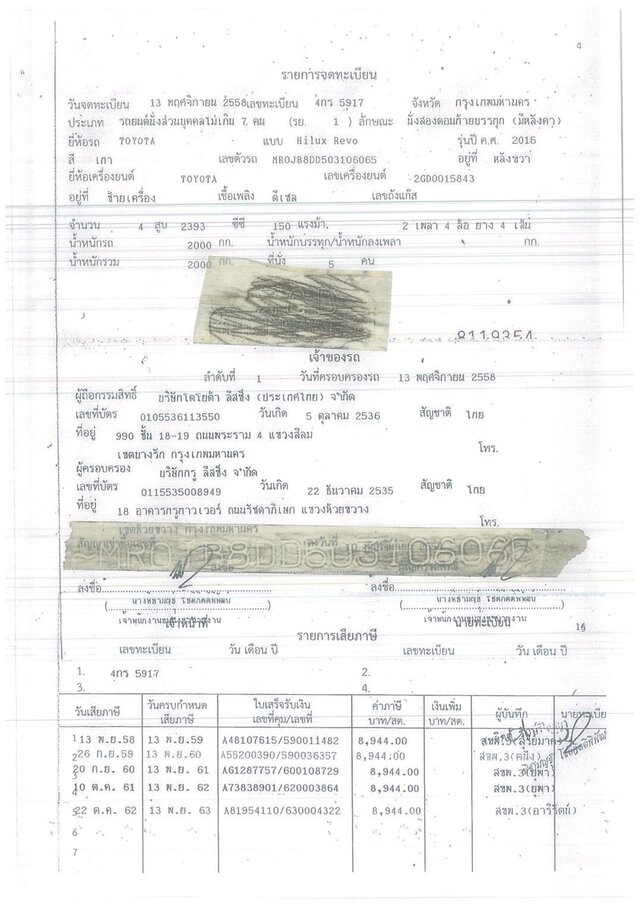 4
รายการจดทะเบียน
วันจดทะเบียน 13 พฤศจิกายน 2558 เลขทะเบียน 4กร 5917 จังหวัด กรุงเทพมหานคร
ประเภท รถยนต์นั่งส่วนบุคคลไม่เกิน 7 คน (รย. 1 ) ลักษณะ นั่งสองตอนท้ายบรรทุก (มีหลังคา)
ยี่ห้อรถ TOYOTA แบบ Hilux Revo รุ่นปี ค.ศ. 2015
สี เทา เลขตัวรถ MR0JB8DD503106065 อยู่ที่ หลังขวา
ยี่ห้อเครื่องยนต์ TOYOTA เลขเครื่องยนต์ 2GD0015843
อยู่ที่ ซ้ายเครื่อง เชื้อเพลิง ดีเซล เลขถังแก๊ส
จำนวน 4 สูบ 2393 ซีซี 150 แรงม้า. 2 เพลา 4 ล้อ ยาง 4 เส้น
น้ำหนักรถ 2000 กก. น้ำหนักบรรทุก/น้ำหนักลงเพลา กก.
น้ำหนักรวม 2000 กก. ที่นั่ง 5 คน
8119354
เจ้าของรถ
ลำดับที่ 1 วันที่ครอบครองรถ 13 พฤศจิกายน 2558
ผู้ถือกรรมสิทธิ์ บริษัทโตโยต้า ลีสซิ่ง (ประเทศไทย) จำกัด
เลขที่บัตร 0105536113550 วันเกิด 5 ตุลาคม 2536 สัญชาติ ไทย
ที่อยู่ 990 ชั้น 18-19 ถนนพระราม 4 แขวงสีลม
เขตบางรัก กรุงเทพมหานคร โทร.
ผู้ครอบครอง บริษัทกรุ ลีสซิ่ง จำกัด
เลขที่บัตร 0115535008949 วันเกิด 22 ธันวาคม 2535 สัญชาติ ไทย
ที่อยู่ 18 อาคารกรูทาวเวอร์ ถนนรัชดาภิเษก แขวงห้วยขวาง
เขตห้วยขวาง กรุงเทพมหานคร โทร.
สัญญาเช่าซื้อเลขที่ ลงวันที่
ลงชื่อ ผู้ถือกรรมสิทธิ์
ลงชื่อ ลงชื่อ
เจ้าหน้าที่ นายทะเบียน
รายการเสียภาษี 16
เลขทะเบียน วัน เดือน ปี เลขทะเบียน วัน เดือน ปี
1. 4กร 5917 2.
3. 4.
วันเสียภาษี วันครบกำหนดเสียภาษี ใบเสร็จรับเงิน เลขที่คุม/เลขที่ ค่าภาษี บาท/สต. เงินเพิ่ม บาท/สต. ผู้บันทึก นายทะเบีย
1 13 พ.ย.58 13 พ.ย.59 A48107615/590011482 8,944.00
26 ก.ย.59 13 พ.ย.60 A55200390/590036357 8,944.00 สชพ.3(คนึง)
20 ก.ย. 60 13 พ.ย. 61 A61287757/600108729 8,944.00 สชพ.3(ยุพา)
10 ต.ค. 61 13 พ.ย. 62 A73838901/620003864 8,944.00 สชพ.3(ยุพา)
22 ต.ค. 62 13 พ.ย. 63 A81954110/630004322 8,944.00 สชพ.3(อารีรัตน์)
6
7